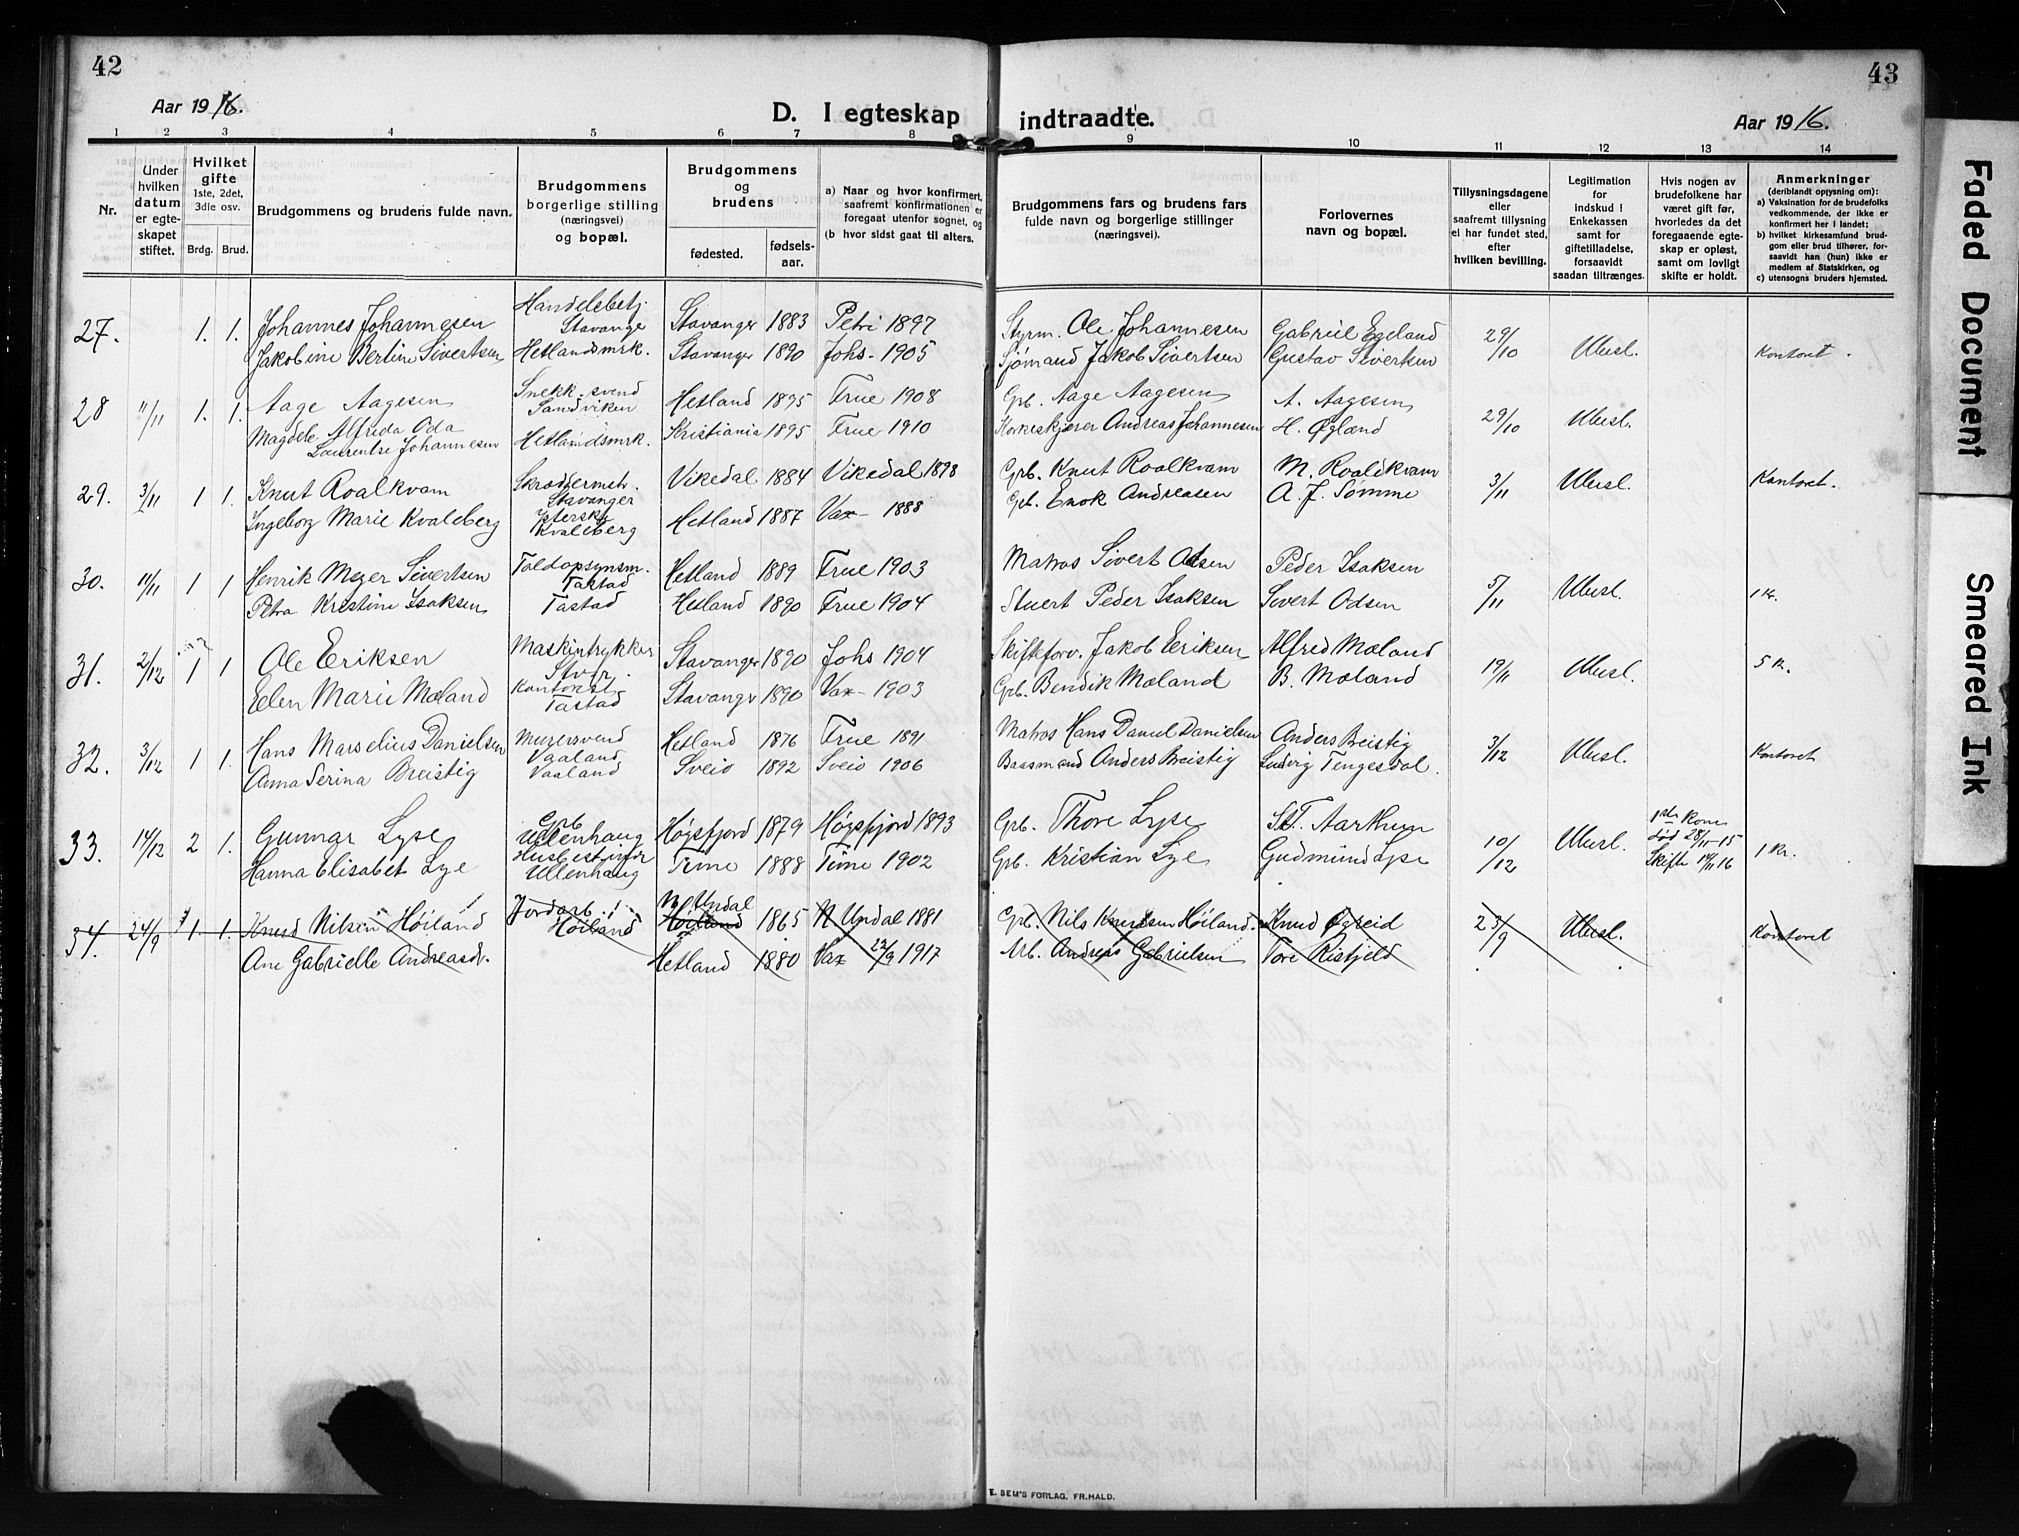 42
Aar 1916.
D. I egteskap
1 2 3 4 5 6 7 8
Nr.
Under hvilken datum er egteskapet stiftet.
Hvilket gifte
1ste, 2det, 3die osv.
Brdg. Brud.
Brudgommens og brudens fulde navn.
Brudgommens borgerlige stilling (næringsvei) og bopæl.
Brudgommens og brudens
fødested.
fødselsaar.
a) Naar og hvor konfirmert, saafremt konfirmationen er foregaat utenfor sognet, og
(b hvor sidst gaat til alters.
27. 1. 1. Johannes Johannesen Handelsbetj. Stavanger Stavanger 1883 Petri 1897
Jakobine Bertine Sivertsen Hetlandsmrk. Stavanger 1890 Johs- 1905
28 11/11 1. 1. Aage Aagesen Snekk.svend Sandviken Hetland 1895 Frue 1908
Magdele Alfrida Oda
Laurentse Johannesen Hetlandsmrk. Kristiania 1895 Frue 1910
29. 3/11 1 1. Knut Roalkvam Skræddermstr. Stavanger Vikedal 1884 Vikedal 1898
Ingeborg Marie Kvaleberg Kvaleberg Hetland 1887 Vax- 1888
30. 11/11 1 1 Henrik Meyer Sivertsen Toldopsynsm. Tastad Hetland 1889 Frue 1903
Petra Kristine Isaksen Tastad Hetland 1890 Frue 1904
31. 2/12 1 1 Ole Eriksen Maskintrykker Stvgr. Stavanger 1890 Johs 1904
Elen Marie Mæland Kontorist Tastad Stavangr 1890 Vax- 1903
32. 3/12 1 1. Hans Marselius Danielsen Murersvend Vaaland Hetland 1876 Frue 1891
Anna Serina Breistig Vaaland Sveio 1892 Sveio 1906
33. 14/12 2 1. Gunnar Lyse Grb Ullenhaug Høgsfjord 1879 Høgsfjord 1893
Hanna Elisabet Lye Ullenhaug Time 1888 Time 1902
34. 24/9 1. 1. Knud Nilsen Höiland Jordarb. Höiland N. Undal Höiland 1865 N Undal 1881
Ane Gabrielle Andreasdr. Hetland 1880 Vax 22/9 1917
43
indtraadte.
Aar 1916.
9 10 11 12 13 14
Brudgommens fars og brudens fars fulde navn og borgerlige stillinger (næringsvei).
Forlovernes navn og bopæl.
Tillysningsdagene eller saafremt tillysning ei har fundet sted, efter hvilken bevilling.
Legitimation for indskud i Enkekassen samt for giftetilladelse, forsaavidt saadan tiltrænges.
Hvis nogen av brudefolkene har været gift før, hvorledes da det foregaaende egteskap er opløst, samt om lovligt skifte er holdt.
Anmerkninger
(deriblandt oplysning om):
a) Vaksination for de brudefolks vedkommende, der ikke er konfirmert her i landet;
b) hvilket kirkesamfund brudgom eller brud tilhører, forsaavidt han (hun) ikke er medlem af Statskirken, og
c) utensogns bruders hjemsted.
Styrm. Ole Johannesen Gabriel Egeland 29/10 Ubesl. Kontoret.
Sjømand Jakob Sivertsen Gustav Sivertsen
Grb. Aage Aagesen A. Aagesen 29/10 Ubesl.
Korkeskjærer Andreas Johannesen H. Øglænd
Grb. Knut Roalkvam M. Roalkvam 3/11 Ubesl. Kontoret.
Grb. Enok Andreasen A. J. Sømme
Matros Sivert Odsen Peder Isaksen 5/11 Ubesl. 1 Kr.
Stuert Peder Isaksen Sivert Odsen
Skifteforv. Jakob Eriksen Alfred Mæland 19/11 Ubesl. 5 K.
Grb. Bendik Mæland B. Mæland
Matros Hans Daniel Danielsen Anders Breistig 3/12 Ubesl. Kontoret
Baasmand Anders Breistig Ludvig Tengesdal.
Grb. Thore Lyse St. T. Aarthun 10/12 Ubesl. 1ste Kone død 28/11-15 Skifte 14/11 16 1 Kr.
Grb. Kristian Lye Gudmund Lyse
Grb. Nils Knudsen Höiland. Knud Øgreid 23/9 Ubesl. Kontoret
Arb. Andreas Gabrielsen Tore Ristjeld
E. SEM'S FORLAG, FR.HALD.
Faded Document
Smeared Ink